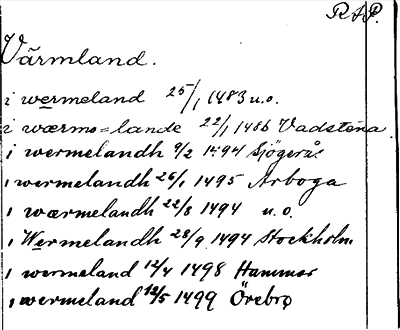 R A P.
Värmland.
i wermeland 25/1 1483 u.o.
i wærms=lande 22/1 1486 Vadstena
i wermelandh 9/2 1494 Sjögerås
i wermelandh 26/1 1495 Arboga
i wærmelandh 22/8 1494 u.o.
i Wermelandh 28/9 1494 Stockholm
i wermeland 12/4 1498 Hammar
i wermeland 12/5 1499 Örebro